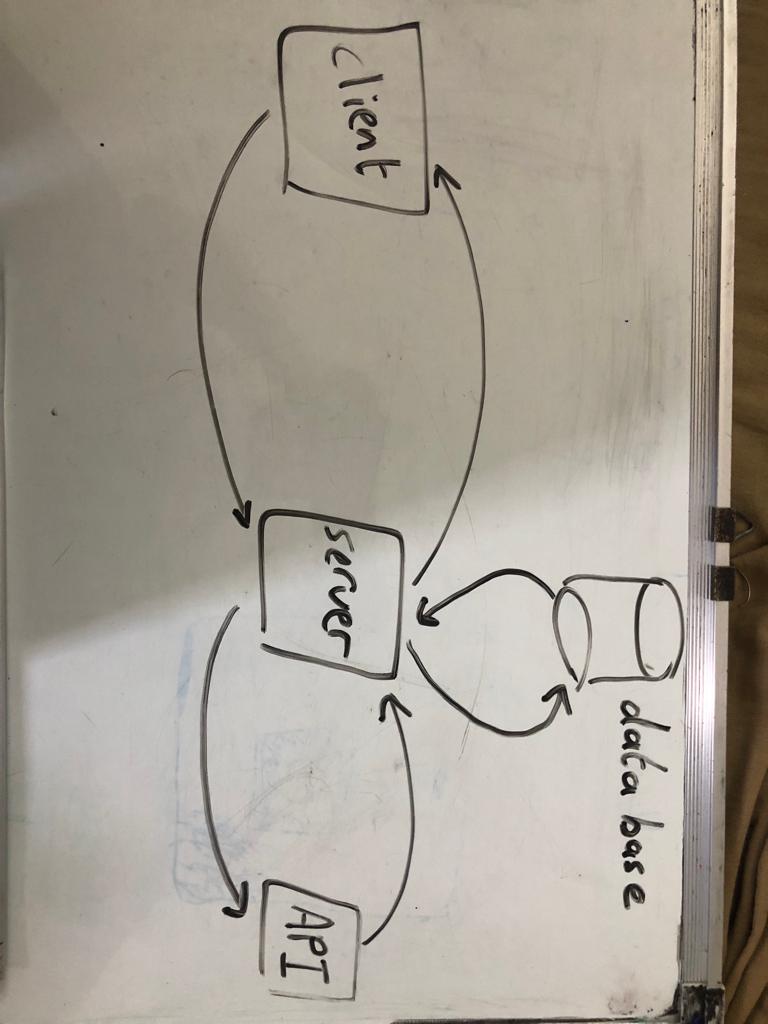 data base
client
server
API